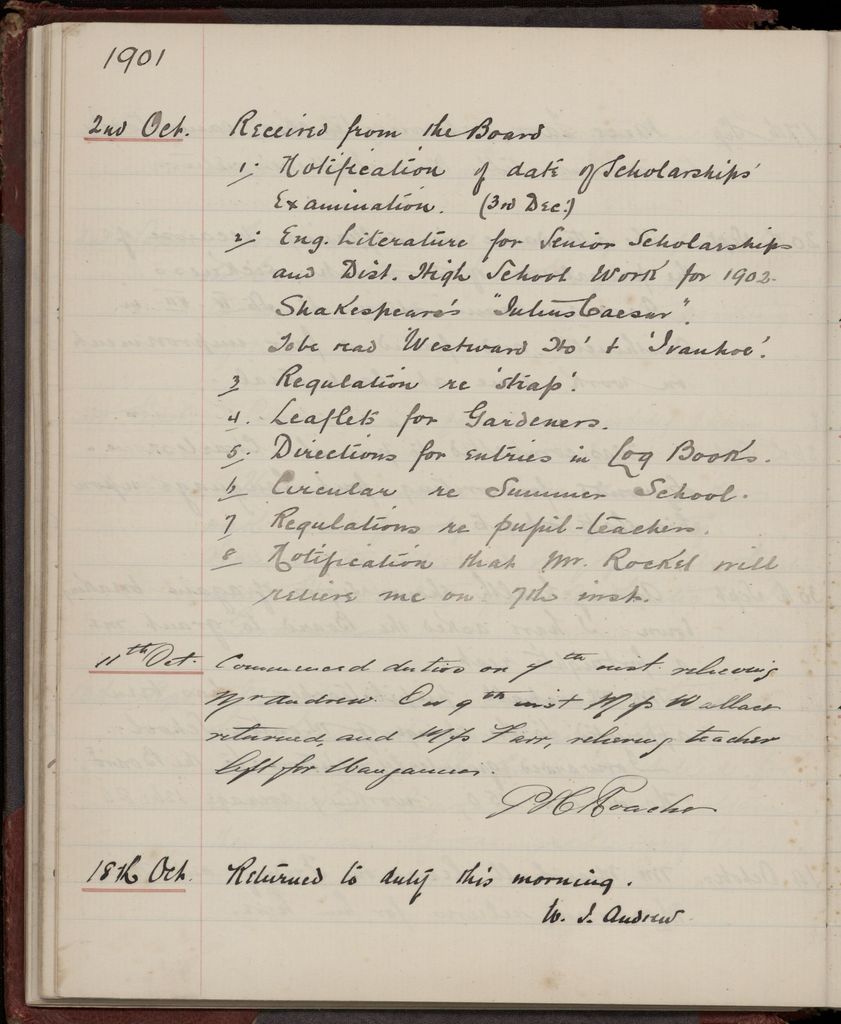 1901
2nd Oct. Received from the Board
1. Notification of date of Scholarships'
Examination. (3rd Dec:)
2. Eng. Literature for Senior Scholarships
and Dist. High School Work for 1902-
Shakespeare's "Julius Caesar".
To be read 'Westward Ho' & 'Ivanhoe'.
3 Regulation re 'strap'.
4. Leaflets for Gardeners.
5. Directions for entries in Log Books.
6 Circular re Summer School.
7 Regulations re pupil-teachers.
8 Notification that Mr. Rockel will
relieve me on 7th inst.
11th Oct. Commenced duties on 7th inst. relieving
Mr Andrew. On 9th inst Miss Wallace
returned, and Miss Farr, relieving teacher
left for Wanganui.
18th Oct. Returned to duty this morning.
W. J. Andrew